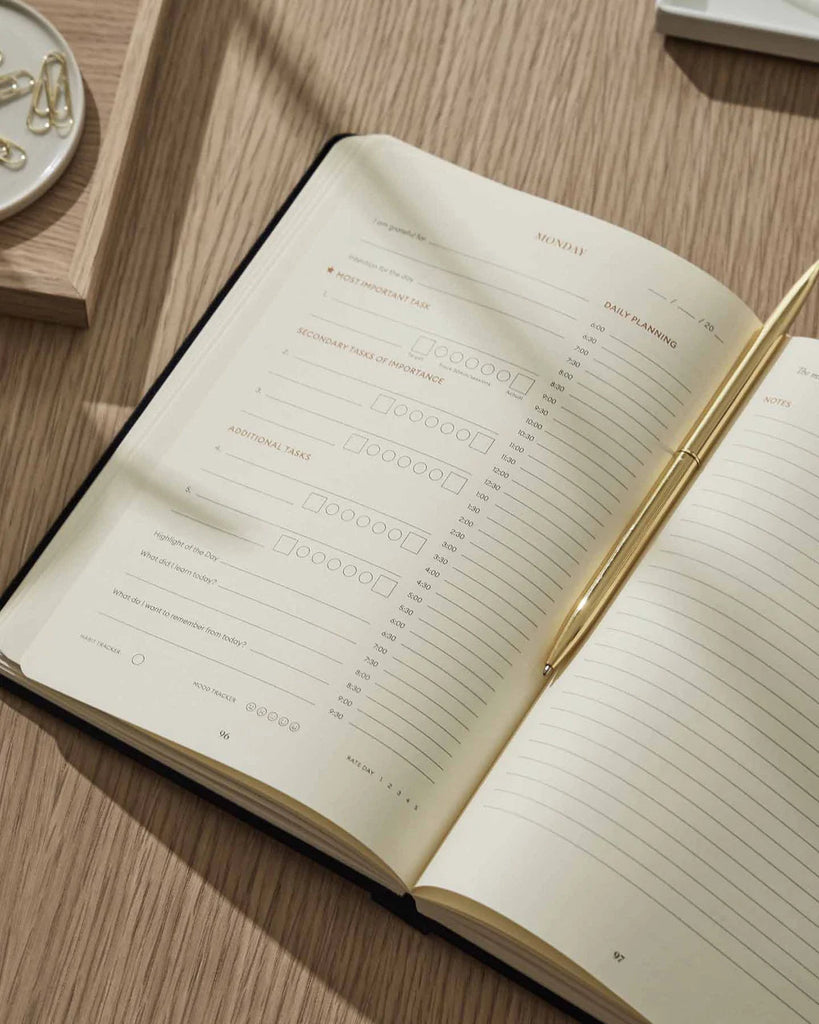 MONDAY
__ / __ / 20 __
I am grateful for
Intention for the day
★ MOST IMPORTANT TASK
1.
Target
Focus sessions
Actual
SECONDARY TASKS OF IMPORTANCE
2.
3.
ADDITIONAL TASKS
4.
5.
Highlight of the Day
What did I learn today?
What do I want to remember from today?
HABIT TRACKER
MOOD TRACKER
DAILY PLANNING
6:00
6:30
7:00
7:30
8:00
8:30
9:00
9:30
10:00
10:30
11:00
11:30
12:00
12:30
1:00
1:30
2:00
2:30
3:00
3:30
4:00
4:30
5:00
5:30
6:00
6:30
7:00
7:30
8:00
8:30
9:00
9:30
RATE DAY 1 2 3 4 5
96
The
NOTES
97